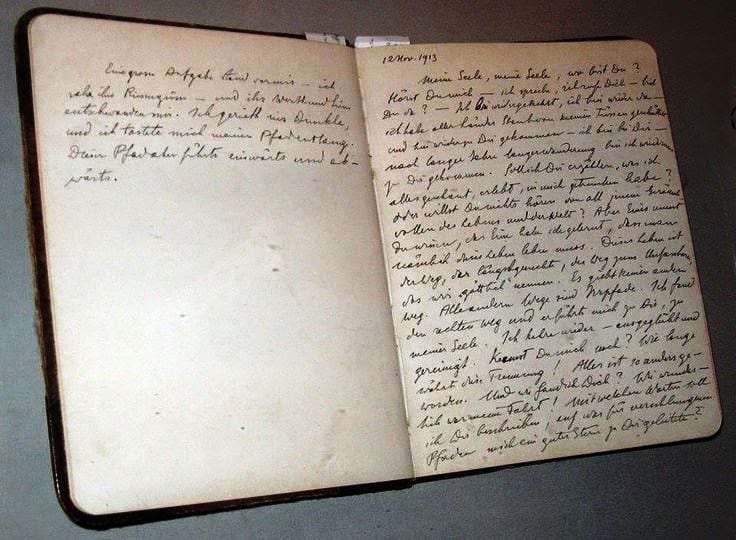 Eine grosse Aufgabe stand vor mir — ich
sah ihr Riesengross — und ihr Wert und Sinn
entschwanden mir. Ich geriet ins Dunkle,
und ich tastete mich meinen Pfad entlang.
Dein Pfad aber führte einwärts und ab-
wärts.
12 Nov. 1913
Meine Seele, meine Seele, wo bist Du?
Hörst Du mich — ich spreche, ich rufe Dich — bist
Du da? — Ich bin wiedergekehrt, ich bin wieder da —
ich habe aller Länder Staub von meinen Füssen geschüttelt
und bin wieder zu Dir gekommen — ich bin bei Dir —
nach langen Jahren langer Wanderung bin ich wieder
zu Dir gekommen. Soll ich Dir erzählen, was ich
alles geschaut, erlebt, in mich getrunken habe?
oder willst Du nichts hören von all jenem
vollen des Lebens und der Welt? Aber Eines musst
Du wissen, das Eine habe ich gelernt, dass man
nämlich dieses Leben leben muss. Dieses Leben ist
der Weg, der längst gesuchte, der Weg zum Unfassbaren,
das wir göttlich nennen. Es giebt keinen andern
Weg. Alle andern Wege sind Irrpfade. Ich fand
den rechten Weg und er führte mich zu Dir, zu
meiner Seele. Ich kehre wieder — ausgeglüht und
gereinigt. Kennst Du mich noch? Wie lange
währte diese Trennung! Alles ist so anders ge-
worden. Und wie fand ich Dich? Wie wunder-
lich war meine Fahrt! Mit welchen Worten soll
ich Dir beschreiben, auf was für verschlungenen
Pfaden mich ein guter Stern zu Dir geleitete?